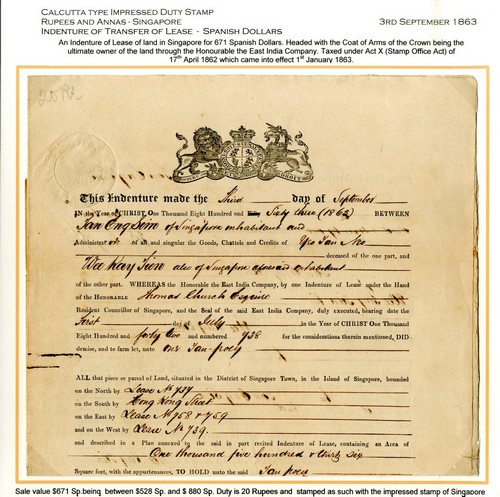 CALCUTTA TYPE IMPRESSED DUTY STAMP
RUPEES AND ANNAS - SINGAPORE 3RD SEPTEMBER 1863
INDENTURE OF TRANSFER OF LEASE - SPANISH DOLLARS
An Indenture of Lease of land in Singapore for 671 Spanish Dollars. Headed with the Coat of Arms of the Crown being the
ultimate owner of the land through the Honourable the East India Company. Taxed under Act X (Stamp Office Act) of
17th April 1862 which came into effect 1st January 1863.
This Indenture made the Third day of September
IN the Year of CHRIST One Thousand Eight Hundred and Sixty three (1863) BETWEEN
Tan Eng Sim of Singapore inhabitant and
Administrator of all and singular the Goods, Chattels and Credits of Yeo Tan Neo
deceased of the one part, and
Wee Kay Tien also of Singapore aforesaid inhabitant
of the other part. WHEREAS the Honorable the East India Company, by one Indenture of Lease under the Hand
of the HONORABLE Thomas Church Esquire
Resident Councillor of Singapore, and the Seal of the said East India Company, duly executed, bearing date the
First day of July in the Year of CHRIST One Thousand
Eight Hundred and forty two and numbered 738 for the considerations therein mentioned, DID
demise, and to farm let, unto one Tan
ALL that piece or parcel of Land, situated in the District of Singapore Town, in the Island of Singapore, bounded
on the North by Lease No 737
on the South by Hong Kong Street
on the East by Lease No 758 & 759
and on the West by Lease No 739.
and described in a Plan annexed to the said in part recited Indenture of Lease, containing an Area of
One thousand five hundred & thirty six
Square feet, with the appurtenances, TO HOLD unto the said Tan
Sale value $671 Sp.being between $528 Sp. and $ 880 Sp. Duty is 20 Rupees and stamped as such with the impressed stamp of Singapore